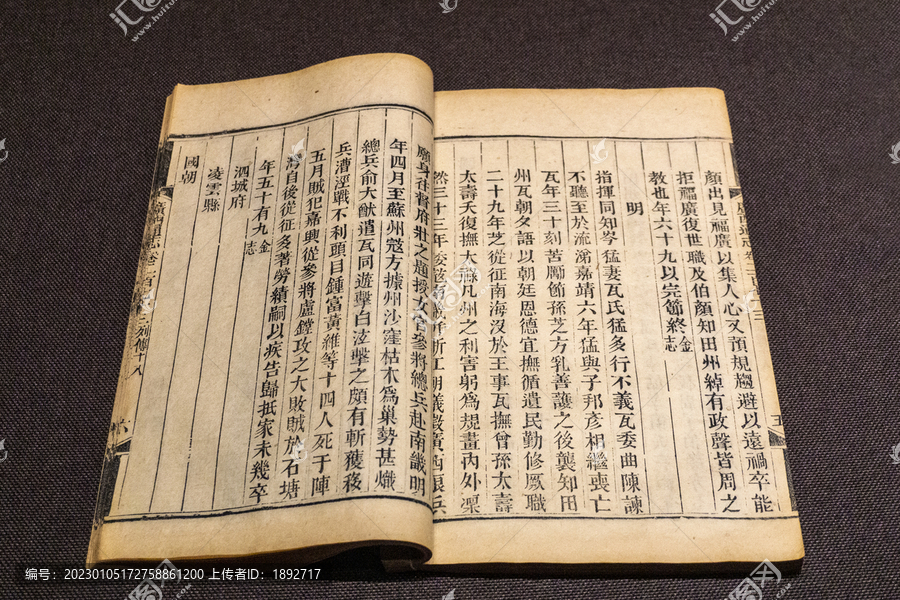 顏出見福廣以集人心又預規趨避以遠禍卒能
拒福廣復世職及伯顏知田州綽有政聲皆周之
教也年六十九以完節終金志
明
指揮同知岑猛妻瓦氏猛多行不義瓦委曲陳諫
不聽至於流涕嘉靖六年猛與子邦彥相繼喪亡
瓦年三十刻苦勵節孫芝方乳善護之後襲知田
州瓦朝夕語以朝廷恩德宜撫循遺民勤修厥職
二十九年芝從征南海沒於王事瓦撫曾孫太壽
太壽夭復撫大祿凡州之利害躬爲規畫內外凜
然三十三年倭寇浙江朝議廣西狼兵
願身往督府壯之題授女官參將總兵赴南畿明
年四月至蘇州寇方據州沙窪枯木爲巢勢甚熾
總兵俞大猷遣瓦同遊擊白泫擊之頗有斬獲移
兵漕涇戰不利頭目鍾富黃維等十四人死于陣
五月賊犯嘉興從參將盧鏜攻之大敗賊於石塘
灣自後從征多著勞績嗣以疾告歸抵家未幾卒
年五十有九金志
泗城府
凌雲縣
國朝
廣西通志 卷二百 列傳十八 六
编号:20230105172758861200 上传者ID:1892717